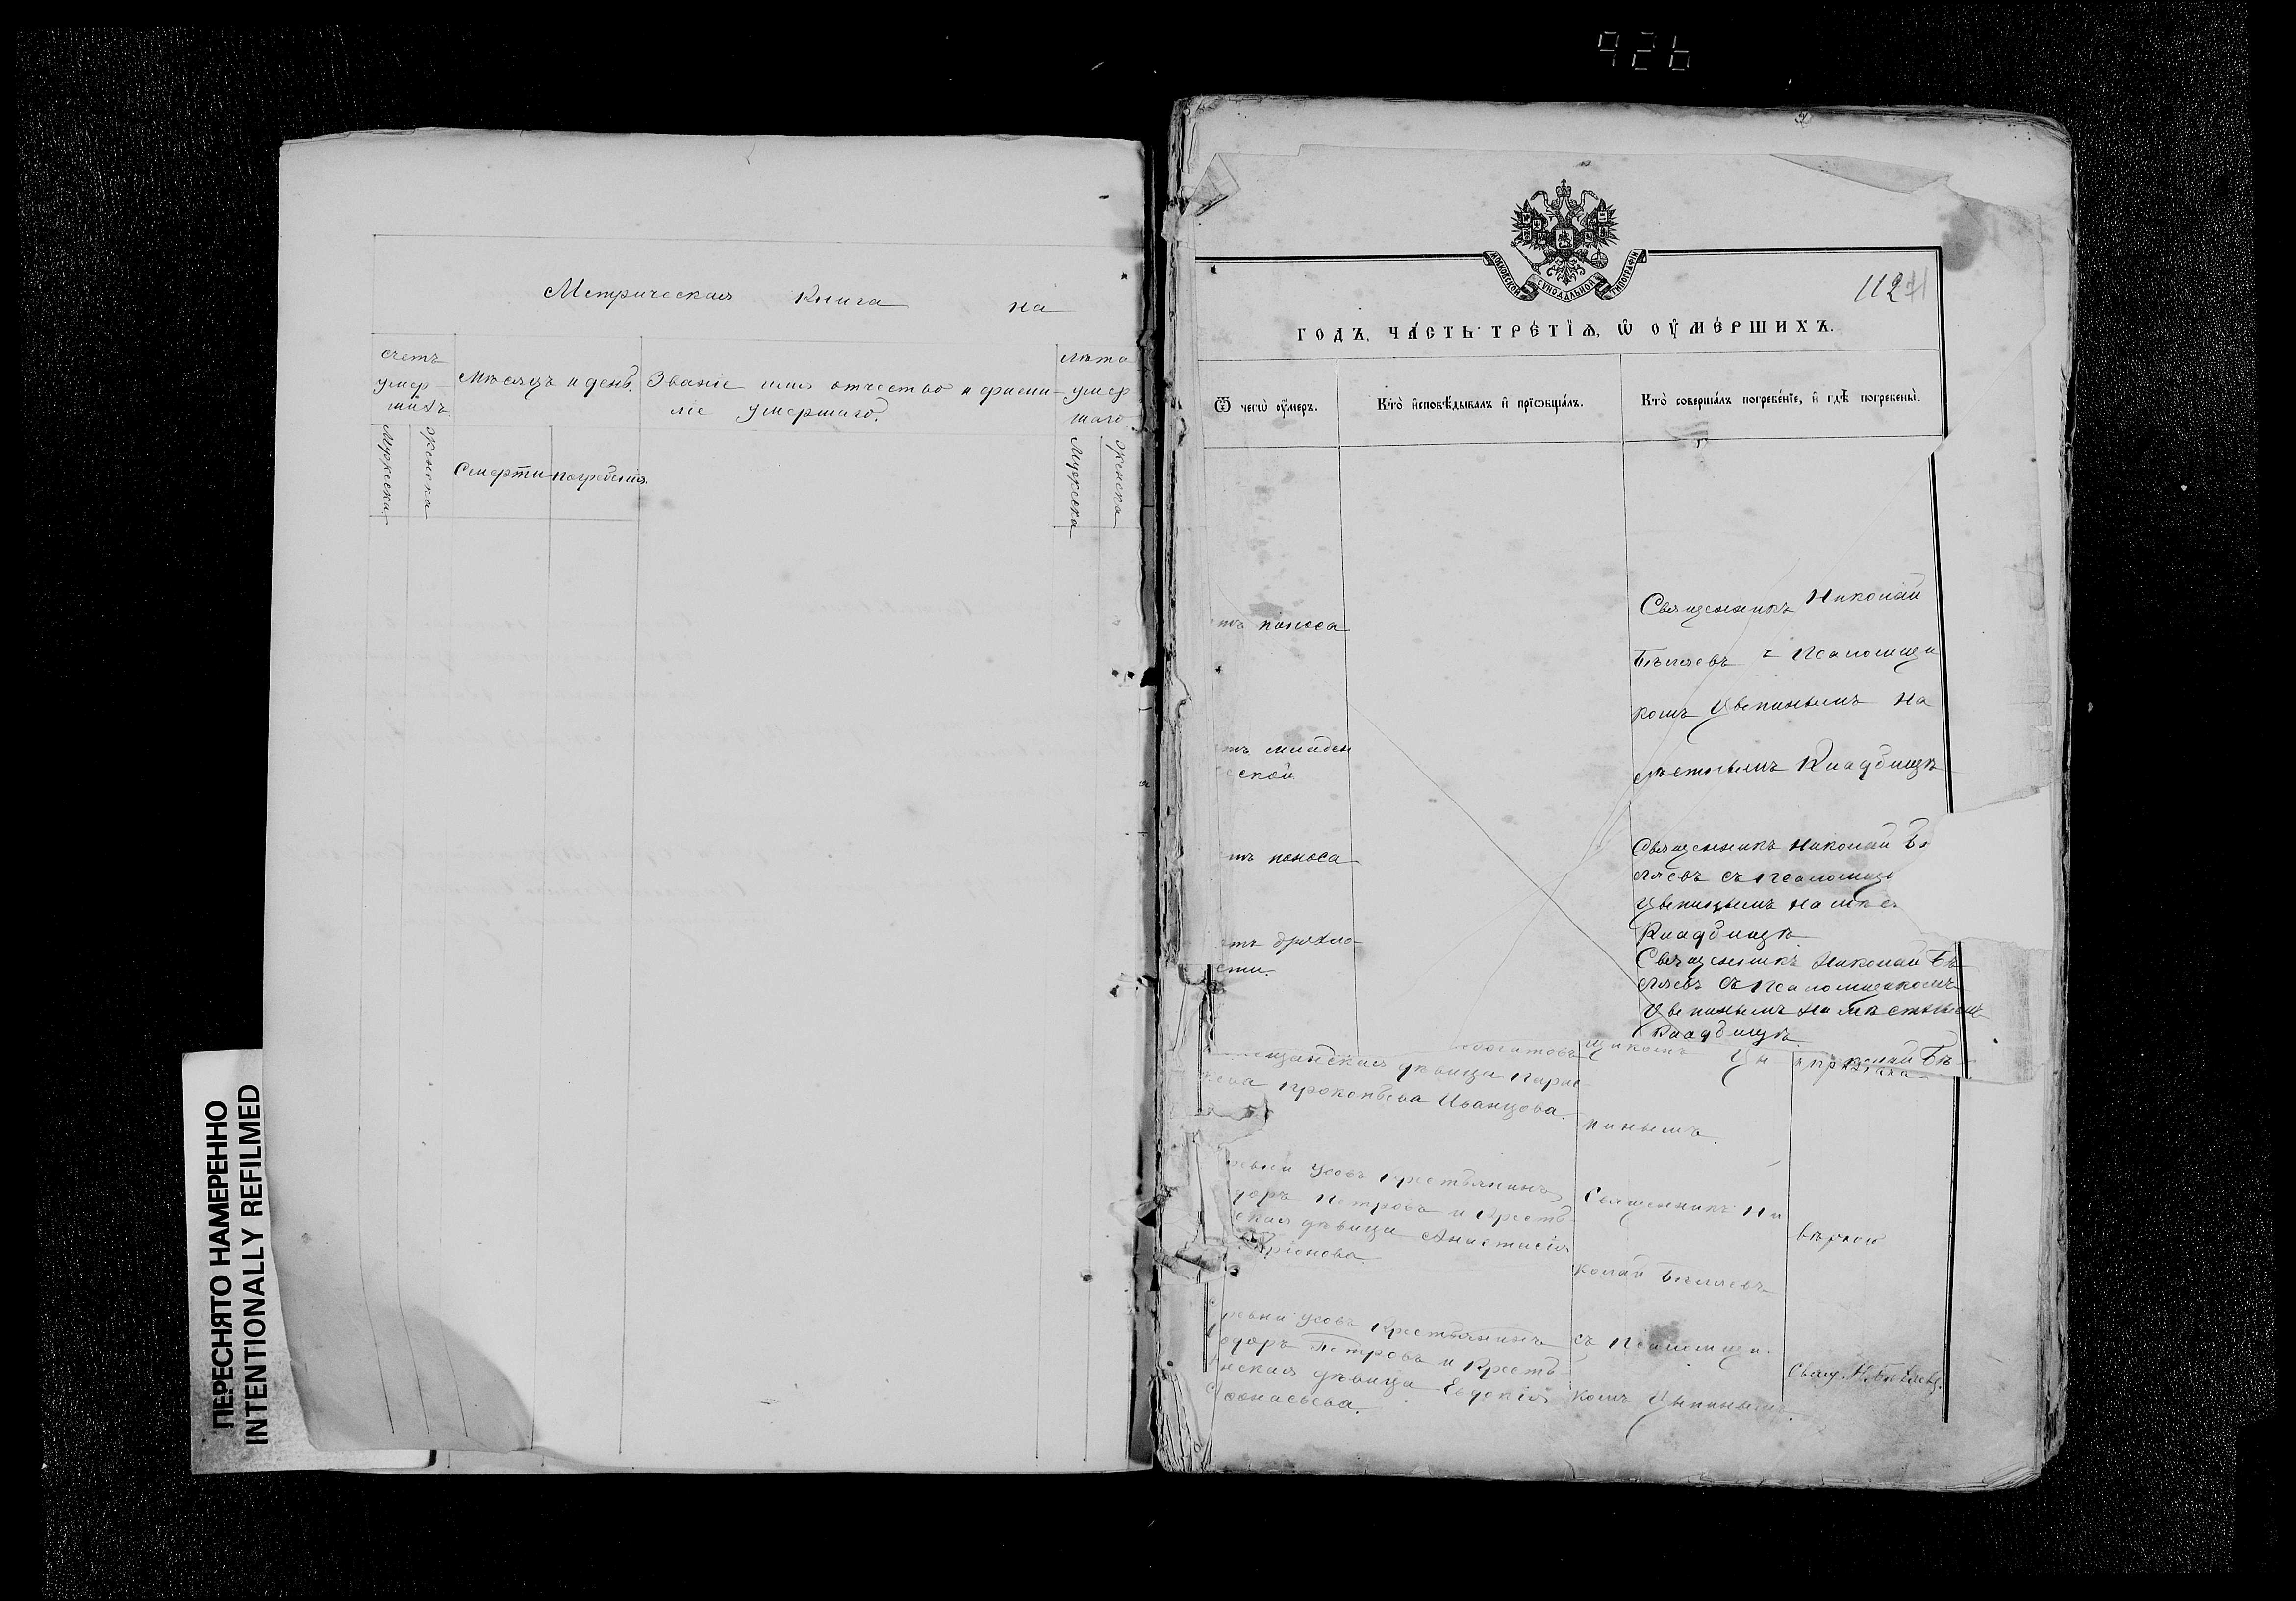 926
Метрическая Книга на
счетъ
умер
шихъ
Мѣсяцъ и день.
Званіе имя отчество и фами-
ліе умершаго.
лѣта
умер
шаго
Мужеска
Женска
Смерти
погребенія.
Мужеска
Женска
МОСКОВСКОЙ СѴНОДАЛЬНОЙ ТИПОГРАФІИ
112
ГОДЪ, ЧА́СТЬ ТРЕ́ТІѦ, Ѡ҆ ОУ҆МЕ́РШИХЪ.
Ѿ чегѡ̀ оу҆́меръ.
Кто̀ и҆сповѣ́дывалъ и҆ прїѡбща́лъ.
Кто̀ соверша́лъ погребе́нїе, и҆ гдѣ̀ погребены̀.
тъ поноса
Священникъ Николай
Бѣляевъ с Псаломщи
комъ Цвепинымъ на
мѣстнымъ Кладбищѣ
тъ младен
ческой
тъ поноса
Священникъ Николай Бѣ
ляевъ съ Псаломщ
Цвепинымъ на мѣс
Кладбищѣ
тъ дряхло-
сти.
Священникъ Николай Бѣ
ляевъ съ Псаломщикомъ
Цвепинымъ на мѣстнымъ
Кладбищѣ.
щанская дѣвица Парас
кева Прокопьева Иванцова.
щикомъ Цы
пинымъ.
колай Бѣ
ревни Усовъ крестьянинъ
доръ Петровъ и Кресть
ская дѣвица Анастасія
Священникъ Ни
колай Бѣляевъ
вѣрною
ревни Усовъ Крестьянинъ
одоръ Петровъ и Кресть
нская дѣвица Евдокія
Афонасьева.
съ Псаломщи
комъ Цыпинымъ.
Свящ. Н. Бѣляевъ.
ПЕРЕСНЯТО НАМЕРЕННО
INTENTIONALLY REFILMED